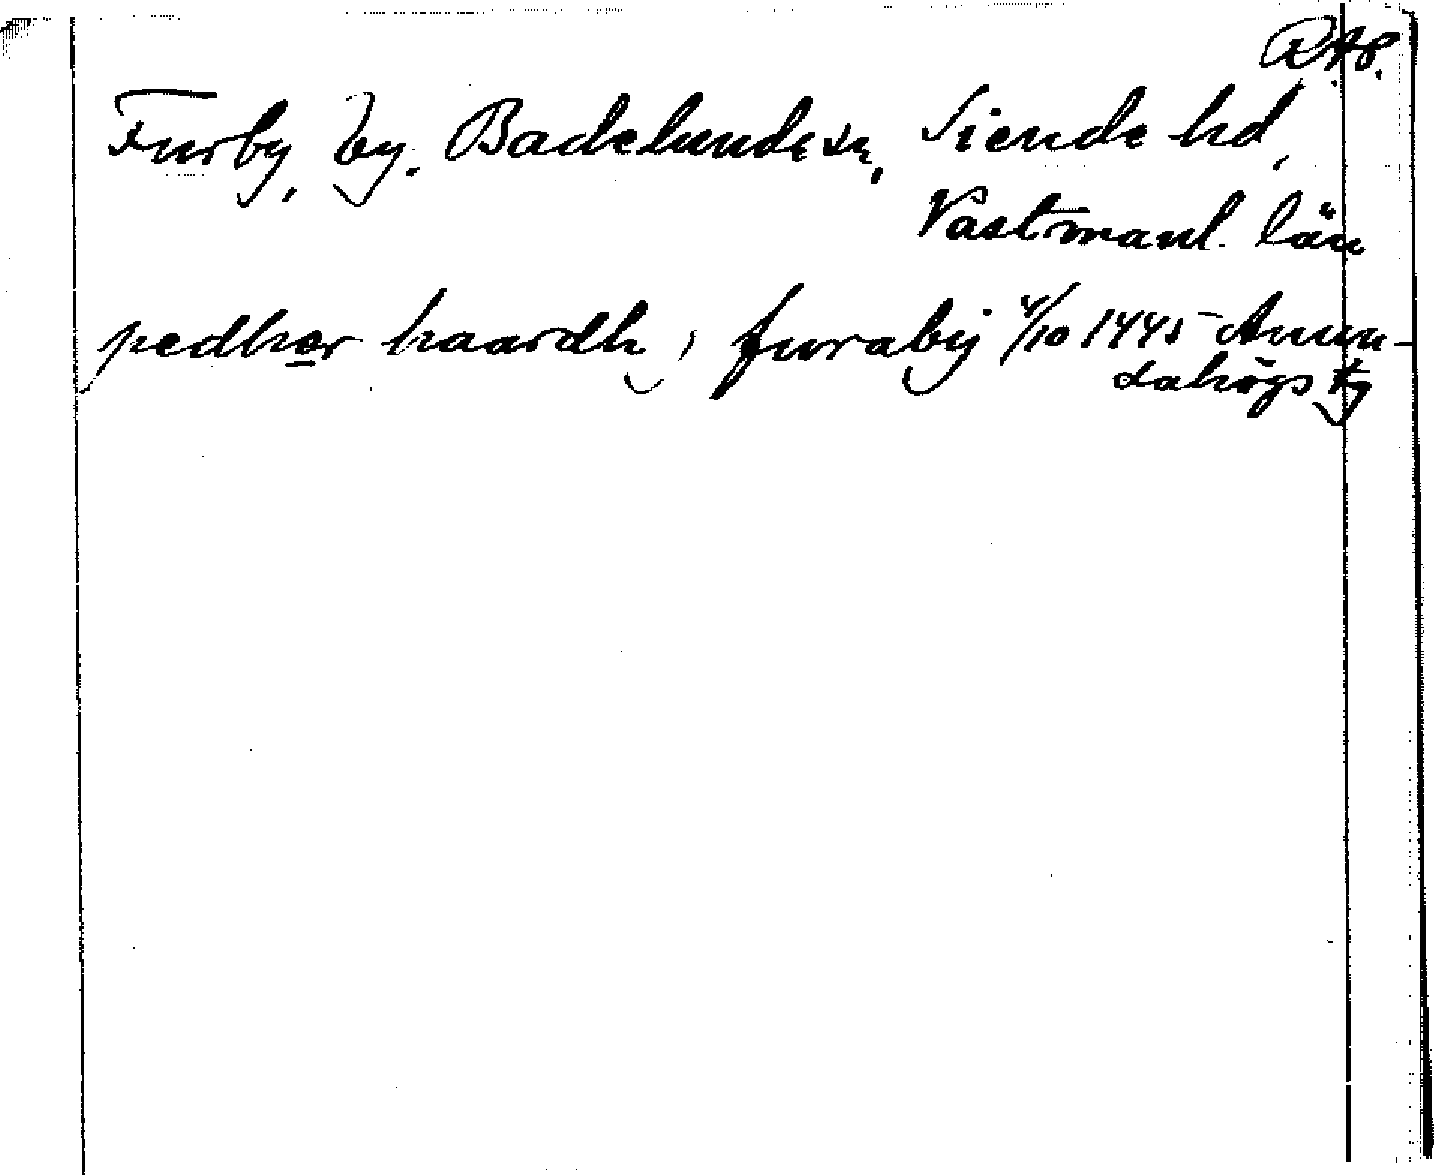 RAP.
Furby, by. Badelunda sn, Siende hd,
Västmanl. län
pedher haardh i furaby 4/10 1445 Anun-
dahögs tg